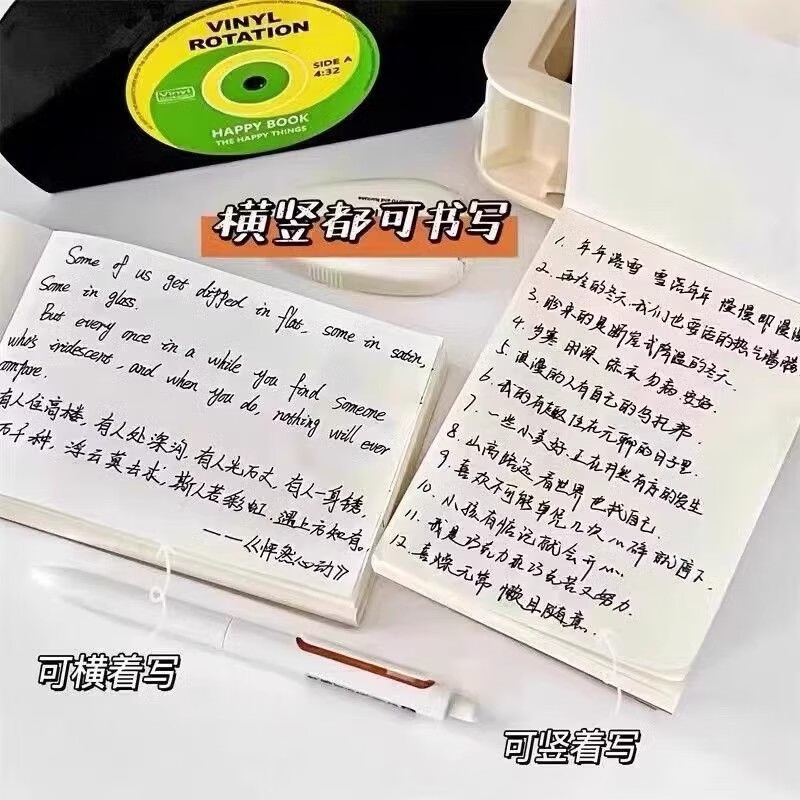 VINYL
ROTATION
SIDE A
4:32
Vinyl
HAPPY BOOK
THE HAPPY THINGS
横竖都可书写
Some of us get dipped in flat, some in satin,
Some in gloss.
But every once in a while you find someone
who's iridescent, and when you do, nothing will ever
ompare.
有人住高楼，有人处深沟，有人光万丈，有人一身锈，
万千种，浮云莫去求，斯人若彩虹，遇上方知有。
——《怦然心动》
1. 年年落雪 雪落年年 慢慢即漫漫
2. 再冷的冬天 我们也要活的热气腾腾
3. 盼来的是断崖式降温的冬天.
4. 岁寒 时深 勿病 安好.
5. 浪漫的人有自己的乌托邦.
6. 我的有趣住在无聊的日子里.
7. 一些小美好 正在井然有序的发生
8. 山高路远 看世界 也找自己.
9. 喜欢不可能单凭几次心碎就
10. 小孩有 就会开心.
11. 我是巧克力 乖巧克苦又努力.
12. 喜燥无常 懒且随意.
可横着写
可竖着写